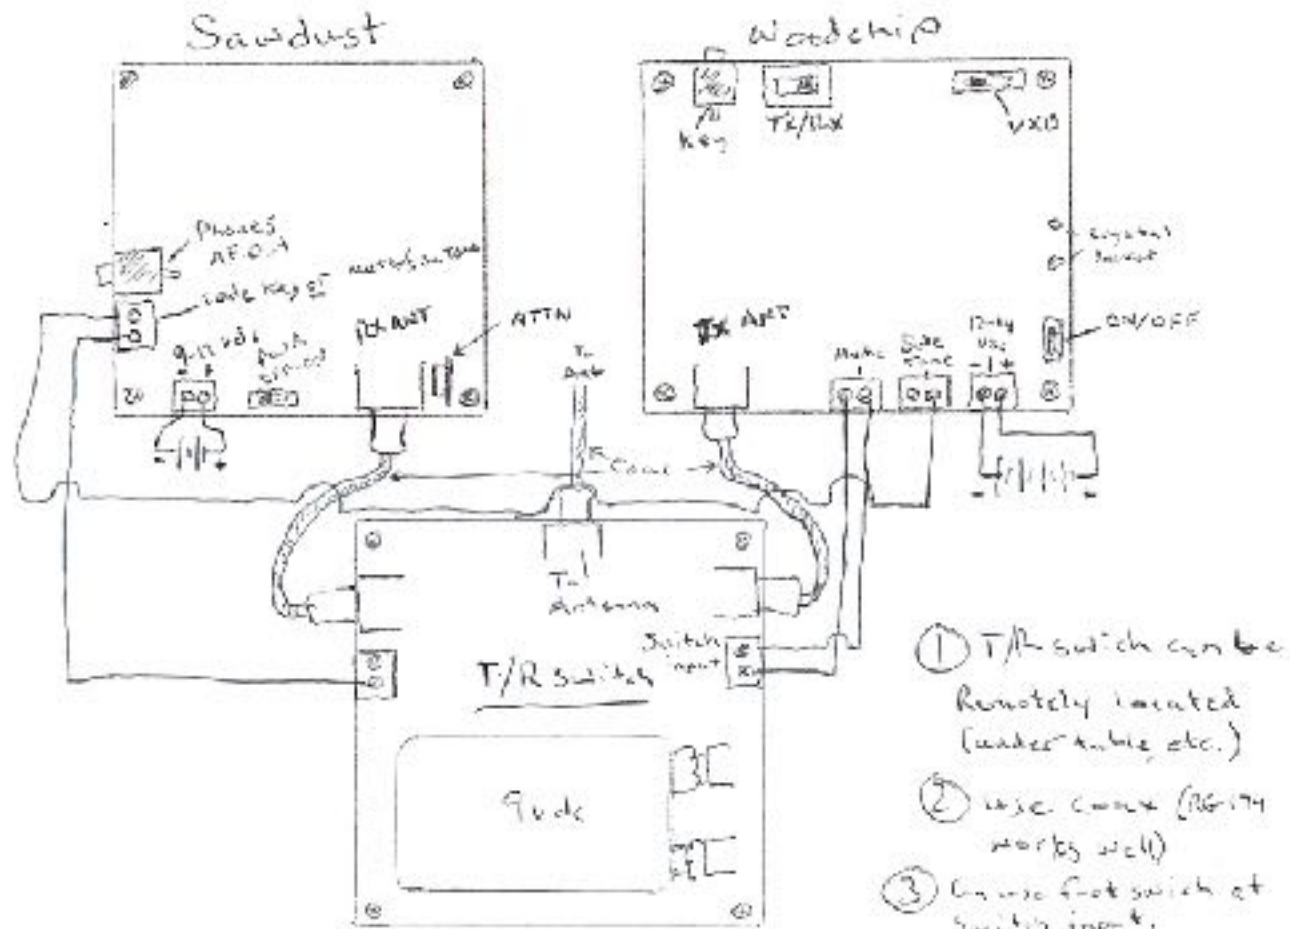 Sawdust
Woodchip
Key
TX/RX
VXO
Phones
crystal
socket
ON/OFF
9-12 volts
RX ANT
ATTN
To
Ant
TX ANT
Mute
Side
tone
Coax
To
Antenna
Switch
input
T/R Switch
9vdc
① T/R switch can be
Remotely located
(under table, etc.)
② use coax (RG174
works well)
③ Can use foot swich at
switch input.